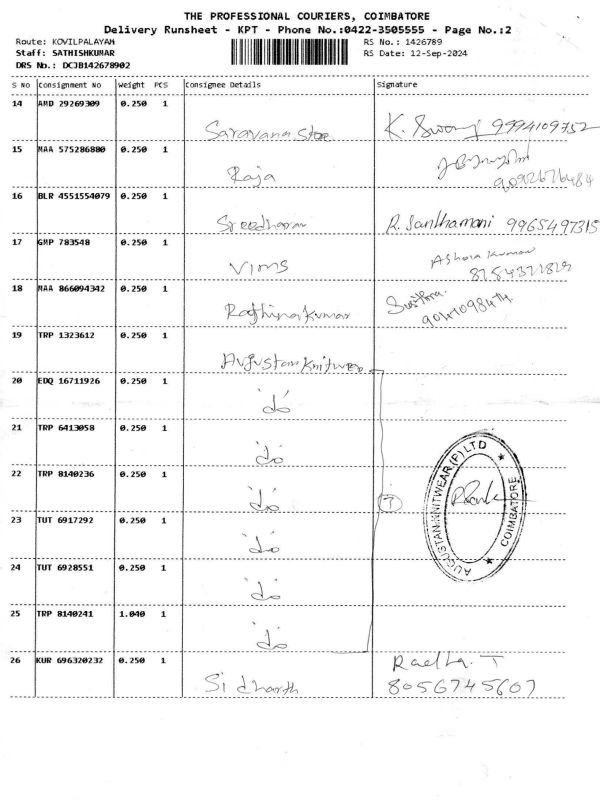 THE PROFESSIONAL COURIERS, COIMBATORE
Delivery Runsheet - KPT - Phone No.:0422-3505555 - Page No.:2
Route: KOVILPALAYAM
RS No.: 1426789
Staff: SATHISHKUMAR
RS Date: 12-Sep-2024
DRS No.: DCJB142678902
S No Consignment No Weight PCS Consignee Details Signature
14 AMD 29269309 0.250 1
Saravana Store K. Swamy 9994109752
15 MAA 575286880 0.250 1
Raja
16 BLR 4551554079 0.250 1
Sreedharan R. Santhamani 9965497315
17 GMP 783548 0.250 1
Vims Ashok Kumar
18 MAA 866094342 0.250 1
Rathinakumar
19 TRP 1323612 0.250 1
Augustan Knitwear
20 EDQ 16711926 0.250 1
do
21 TRP 6413058 0.250 1
do
22 TRP 8140236 0.250 1
do 7
AUGUSTAN KNITWEAR (P) LTD
COIMBATORE
23 TUT 6917292 0.250 1
do
24 TUT 6928551 0.250 1
do
25 TRP 8140241 1.040 1
do
26 KUR 696320232 0.250 1
Radha. T
Sidharth 8056745607